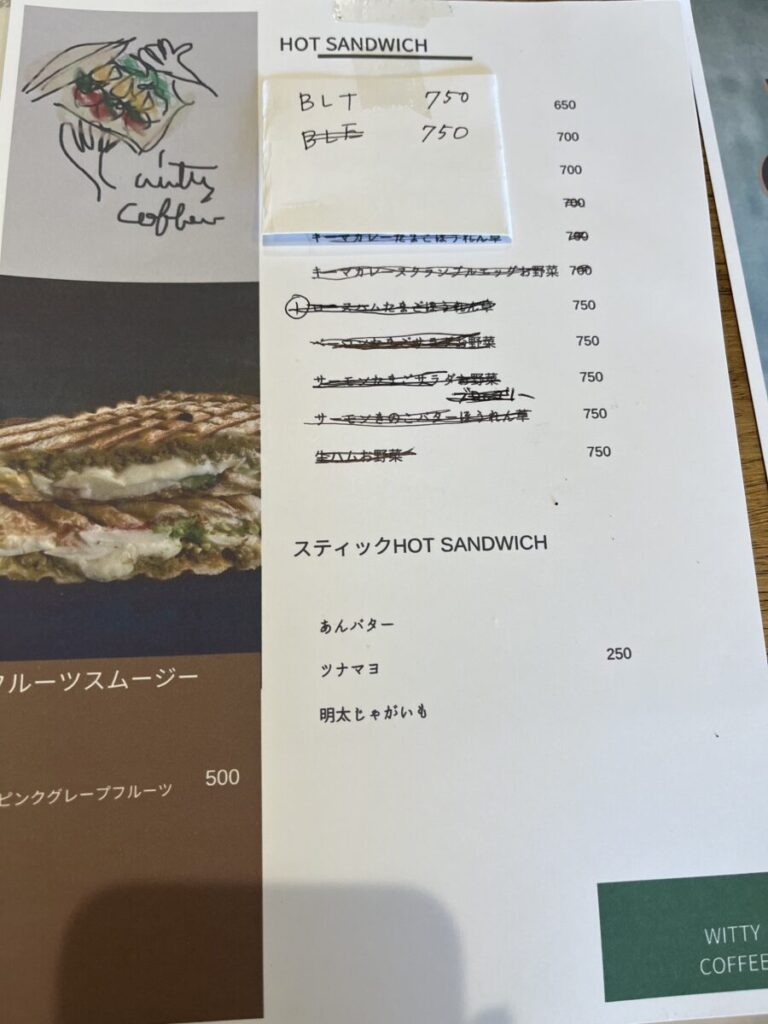 witty
coffee
HOT SANDWICH
BLT 750
BLT 750
650
700
700
700
キーマカレーたまごほうれん草 700
キーマカレースクランブルエッグお野菜 700
ロースハムたまごほうれん草 750
ベーコンたまごサラダお野菜 750
サーモンたまごサラダお野菜 750
サーモンきのこバターほうれん草 750
生ハムお野菜 750
スティックHOT SANDWICH
あんバター
ツナマヨ 250
明太じゃがいも
フルーツスムージー
ピンクグレープフルーツ 500
WITTY
COFFEE